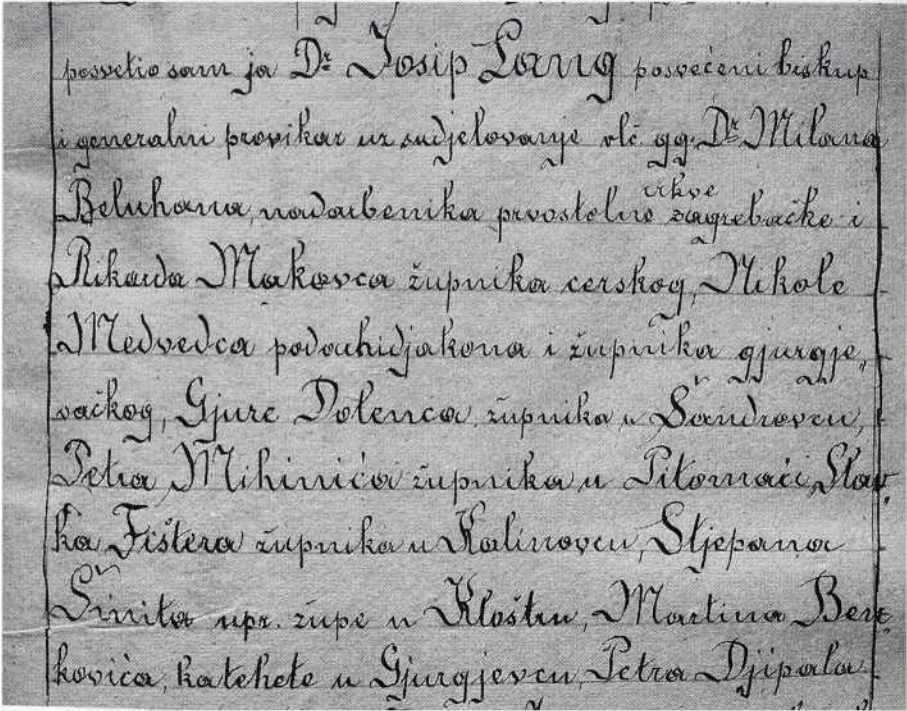 posvetio sam ja Dr Josip Lang posvećeni biskup
i generalni provikar uz sudjelovanje vlč. gg. Dr Milana
Beluhana, nadarbenika prvostolne crkve zagrebačke i
Rikarda Makovca župnika cerskog, Nikole
Medvedca podarhidjakona i župnika gjurgje-
vačkog, Gjure Dolenca, župnika u Šandrovcu,
Petra Mihinića župnika u Pitomači, Slav-
ka Fištera župnika u Kalinovcu, Stjepana
Šinita upr. župe u Kloštru, Martina Ben-
kovića, katehete u Gjurgjevcu, Petra Djipala